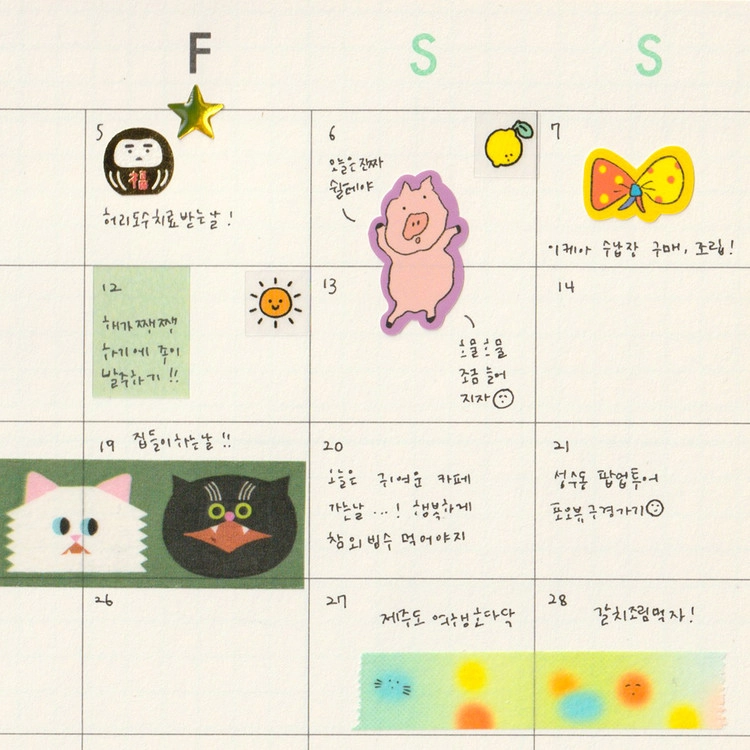 F S S
5
福
허리도수치료받는날!
6
오늘은진짜
쉴테야
7
이케아 수납장 구매, 조립!
12
해가쨍쨍
하기에 종이
발주하기!!
13
흐물흐물
조금 늘어
지자
14
19 집들이하는날!!
20
오늘은 귀여운 카페
가는날...! 행복하게
참외빙수 먹어야지
21
성수동 팝업투어
포오뷰구경가기
26
27 제주도 여행호다닥
28 갈치조림먹자!